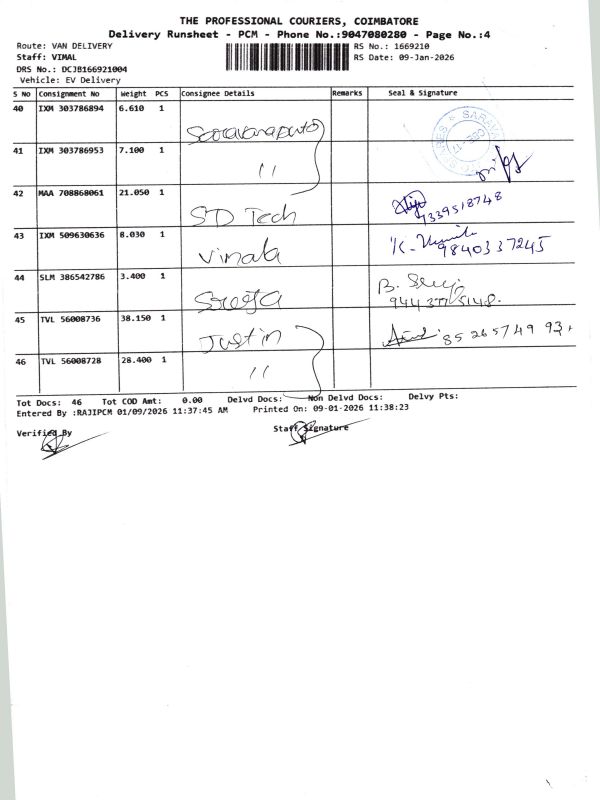 THE PROFESSIONAL COURIERS, COIMBATORE
Delivery Runsheet - PCM - Phone No.:9047080280 - Page No.:4
Route: VAN DELIVERY
RS No.: 1669210
Staff: VIMAL
RS Date: 09-Jan-2026
DRS No.: DCJB166921004
Vehicle: EV Delivery
S No Consignment No Weight PCS Consignee Details Remarks Seal & Signature
40 IXM 303786894 6.610 1
41 IXM 303786953 7.100 1 "
42 MAA 708868061 21.050 1 SD Tech 9339518748
43 IXM 509630636 8.030 1 Vimala 9840337245
44 SLM 386542786 3.400 1 B.
45 TVL 56008736 38.150 1 Justin
46 TVL 56008728 28.400 1 "
Tot Docs: 46 Tot COD Amt: 0.00 Delvd Docs: Non Delvd Docs: Delvy Pts:
Entered By :RAJIPCM 01/09/2026 11:37:45 AM Printed On: 09-01-2026 11:38:23
Verified By Staff Signature